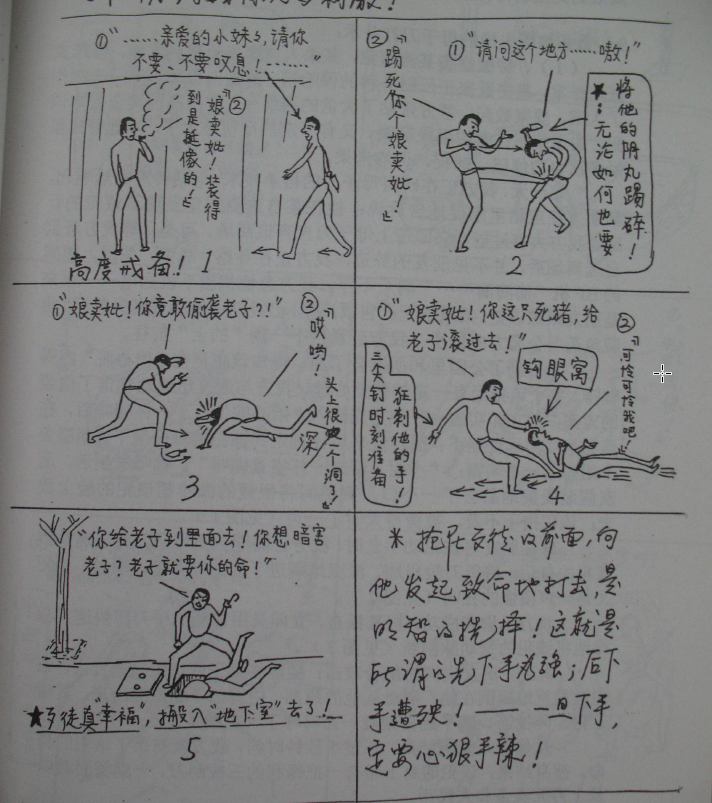 ①“……亲爱的小妹ㄅ,请你
不要、不要叹息!………”
②“娘卖妣!装得
到是挺像的!”
高度戒备!1
①“请问这个地方……嗷!”
②“踢死你个娘卖妣!”
★:无论如何也要
将他的阴丸踢碎!
2
①“娘卖妣!你竟敢偷袭老子?!”
②“哎哟!
头上很 一个洞了!”
深
3
①“娘卖妣!你这只死猪,给
老子滚过去!”
②“可怜可怜我吧!”
钩眼窝
狂刺他的手!
三尖钉时刻准备
4
“你给老子到里面去!你想暗害
老子?老子就要你的命!”
★歹徒真“幸福”,搬入“地下室”去了!
5
※抢在歹徒的前面,向
他发起致命地打击,是
明智的选择!这就是
所谓的先下手为强;后下
手遭殃!——一旦下手,
定要心狠手辣!